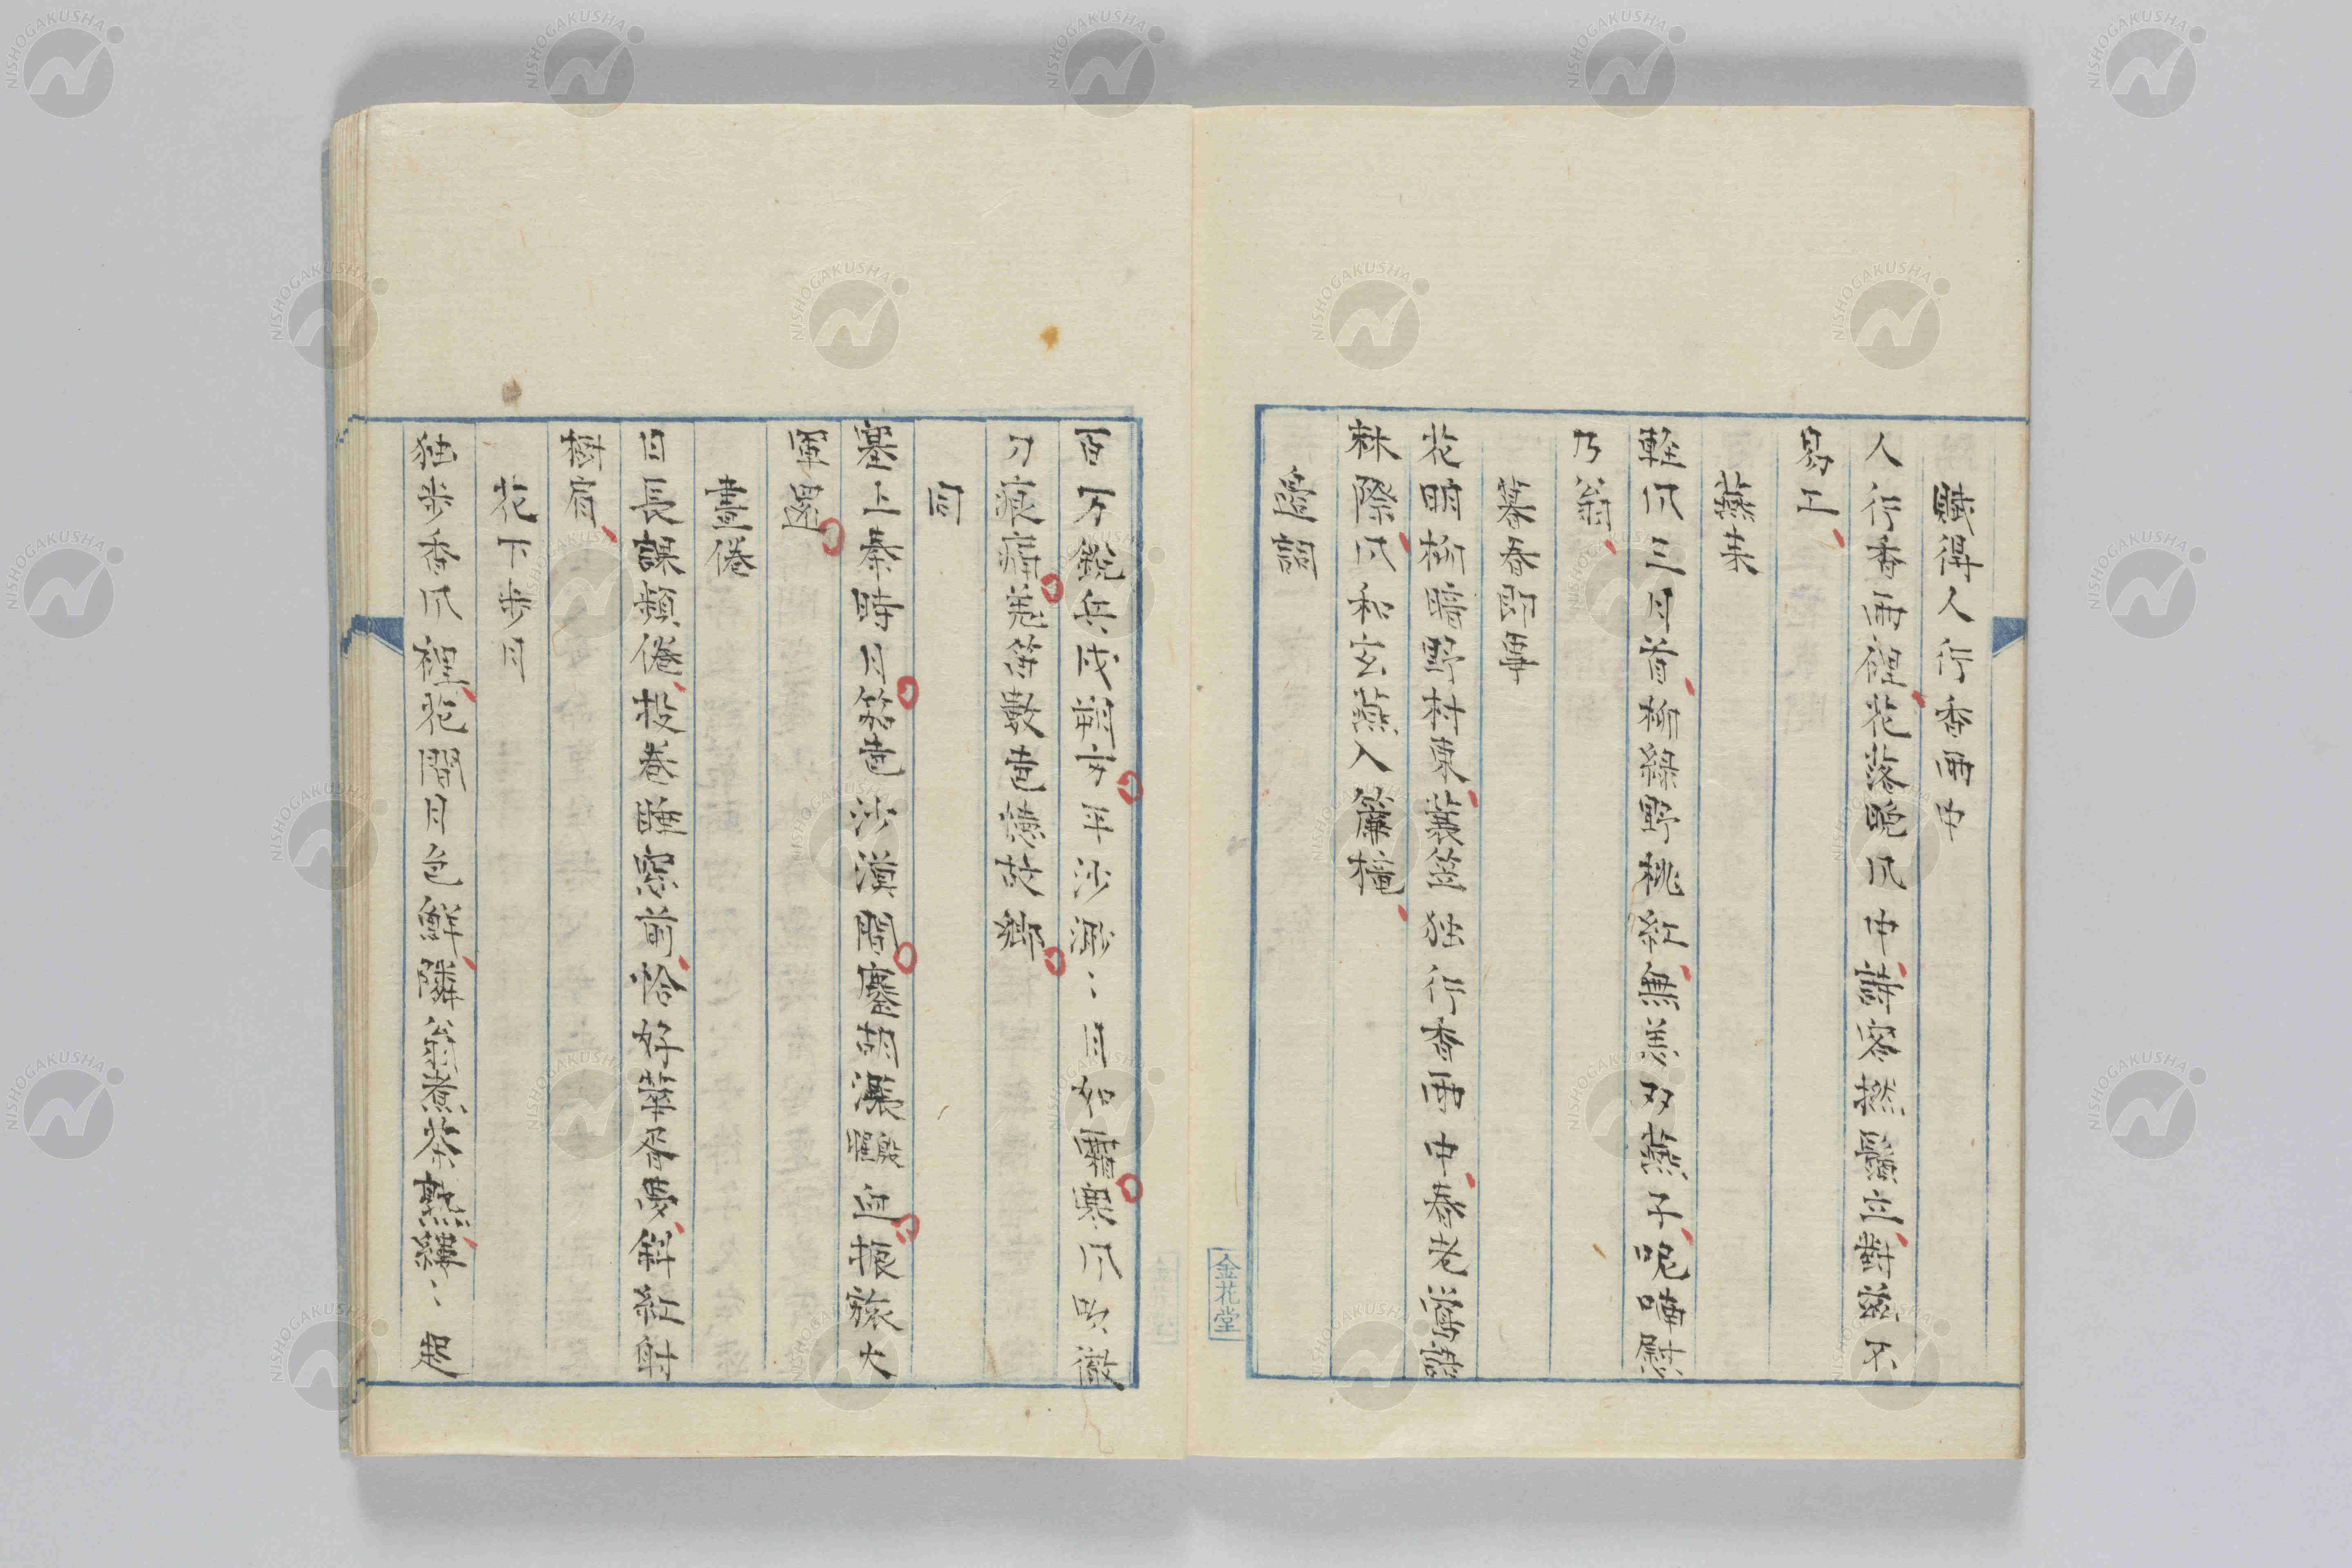 賦得人行香雨中
人行香雨裡花落晩風中詩客立對不
易工
燕来
軽風三月首柳緑野桃紅無恙双燕子呢喃慰
乃翁
暮春即事
花明柳暗野村東蓑笠独行香雨中春老鶯
林際風和玄燕入簾櫳
塞詞
百万観兵戍朔方平沙漠々月如霜寒風吹徹
刀痕痛羌笛数声憶故郷
同
塞上秦時月笳声沙漠間鏖胡血振旅大
軍還
晝倦
日長課頻倦投巻睡窓前恰好華胥夢斜紅射
樹肩
花下歩月
独歩香風裡花間月色鮮隣翁煮茶熟縷々起
金花堂